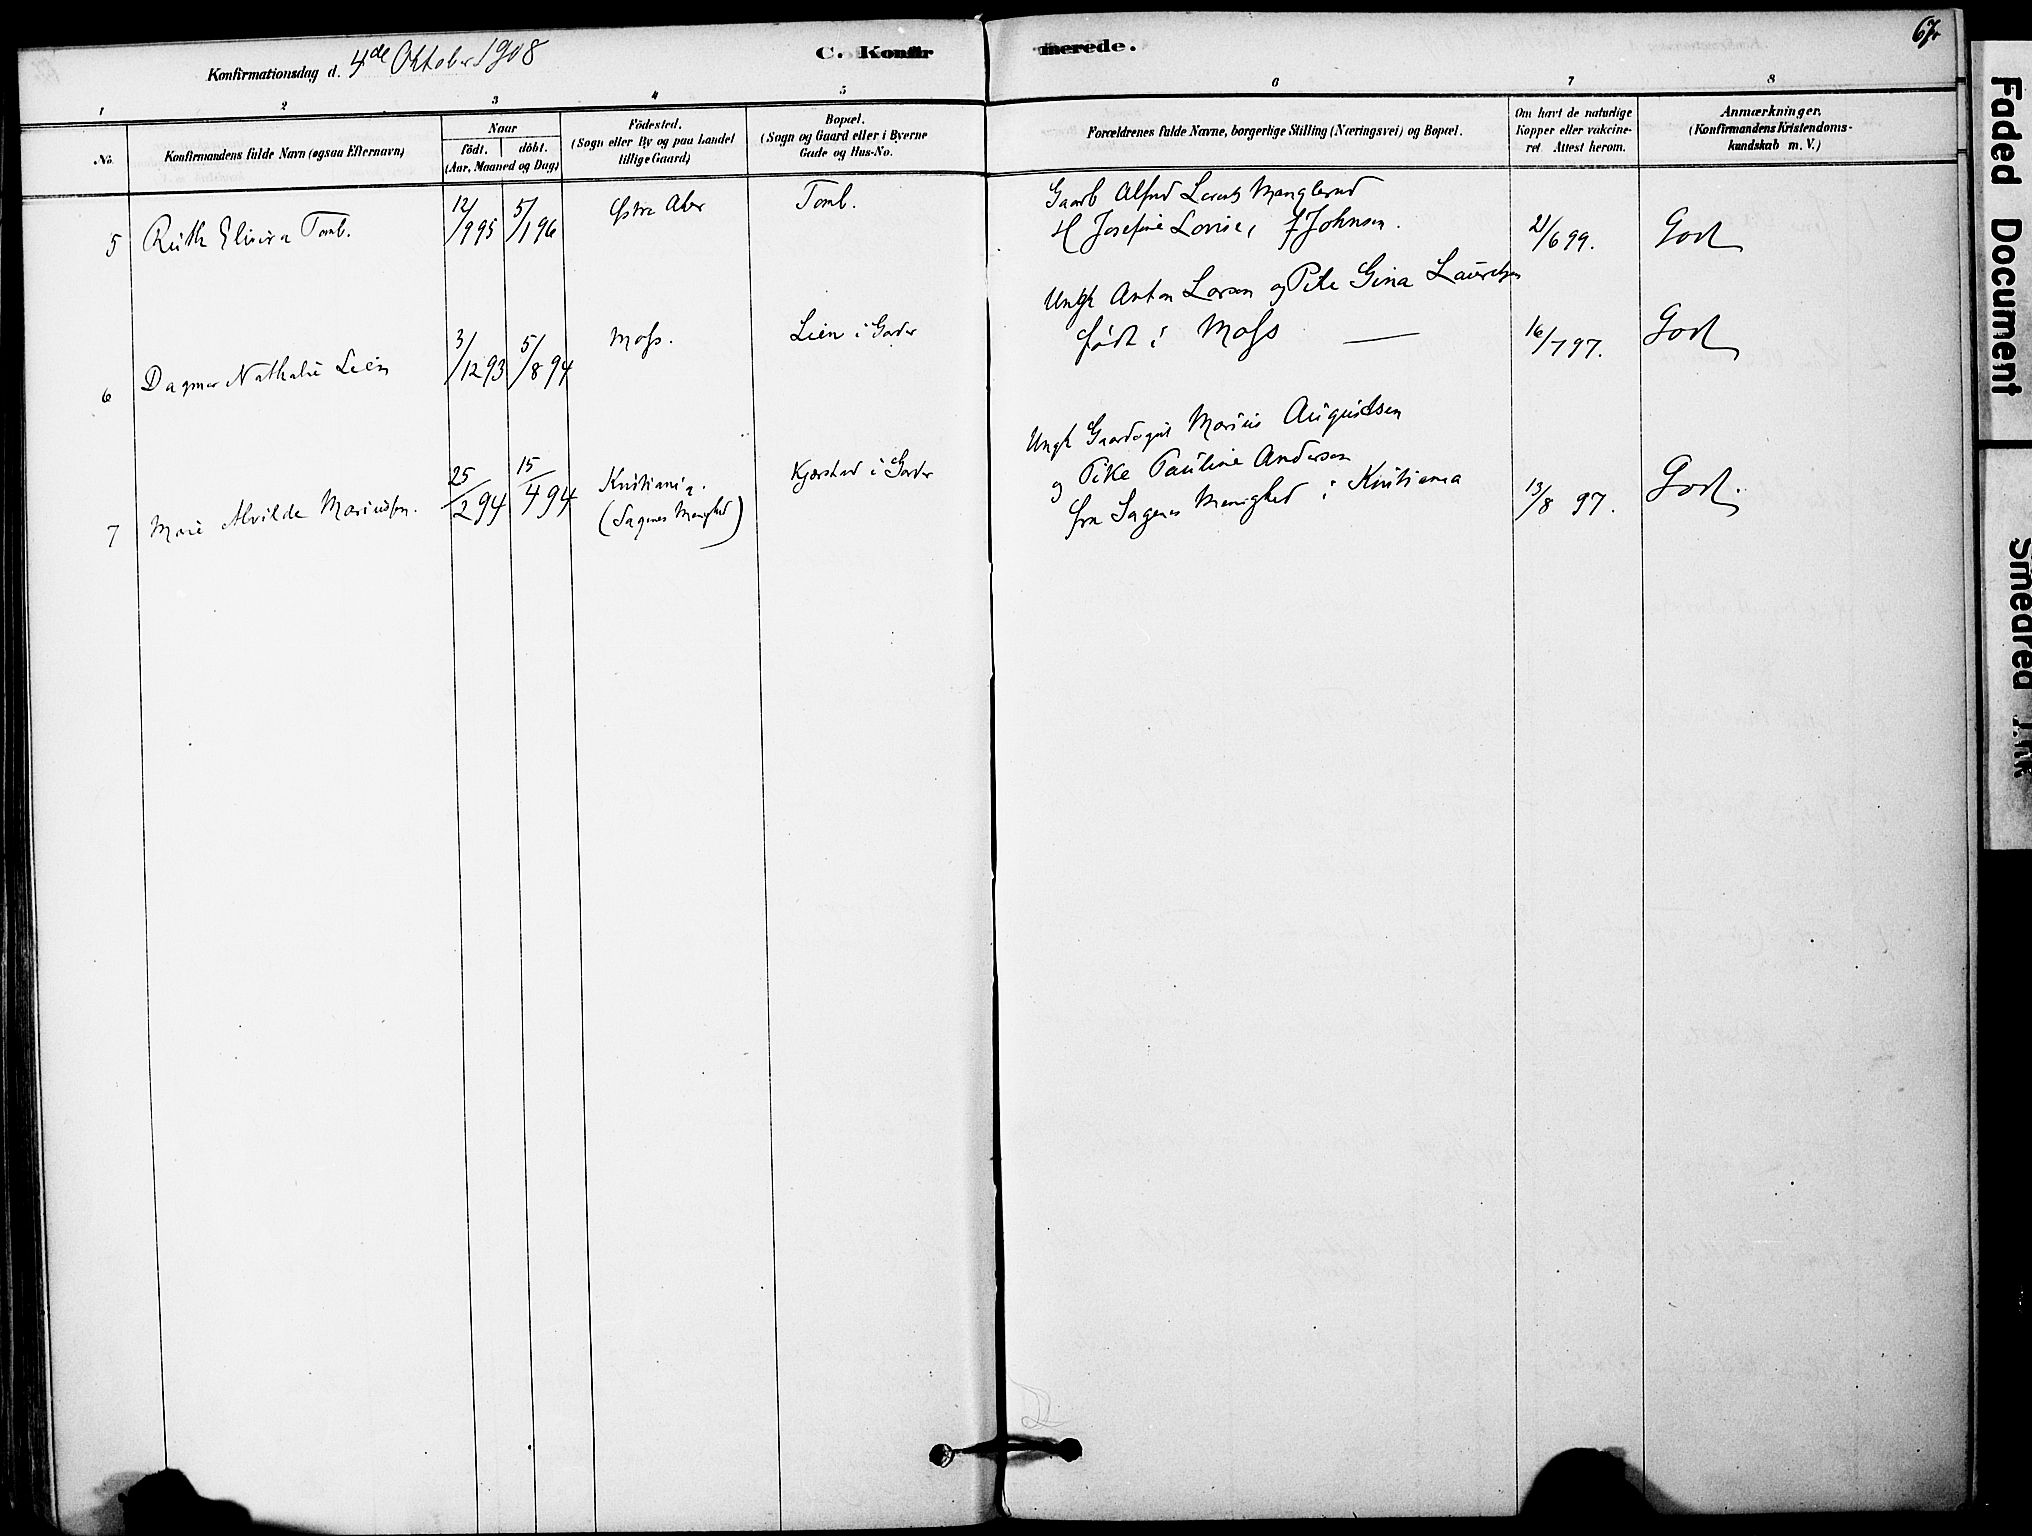 67
Konfirmationsdag d. 4de Oktober 1908
C. Konfirmerede.
1 2 3 4 5 6 7 8
No.
Konfirmandens fulde Navn (ogsaa Efternavn)
Naar
födt. döbt.
(Aar, Maaned og Dag)
Födested.
(Sogn eller By og paa Landet
tillige Gaard)
Bopæl.
(Sogn og Gaard eller i Byerne
Gade og Hus-No.
Forældrenes fulde Navne, borgerlige Stilling (Næringsvei) og Bopæl.
Om havt de naturlige
Kopper eller vakcine-
ret Attest herom.
Anmærkninger.
(Konfirmandens Kristendoms-
kundskab m. V.)
5 Ruth Elvira Tomb. 12/9 95 5/1 96 Østre Aker Tomb.
Gaarb Alfred Lorentz Manglerud
H Josefine Lovise, f Johnsen. 21/6 99. Godt
6 Dagmar Nathalie Lein 3/12 93 5/8 94 Moss. Lien i Garder
Ungk Anton Larsen og Pike Gina Lauritzen
født i Moss — 16/7 97. Godt
7 Marie Alvilde Mariussen. 25/2 94 15/4 94 Kristiania.
(Sagenes Menighed)
Kjærstad i Garder
Ungk Gaardsgut Marius Augustsen
og Pike Pauline Andersen
fra Sagenes Menighed i Kristiania 13/8 97. Godt.
Faded Document
Smeared Ink